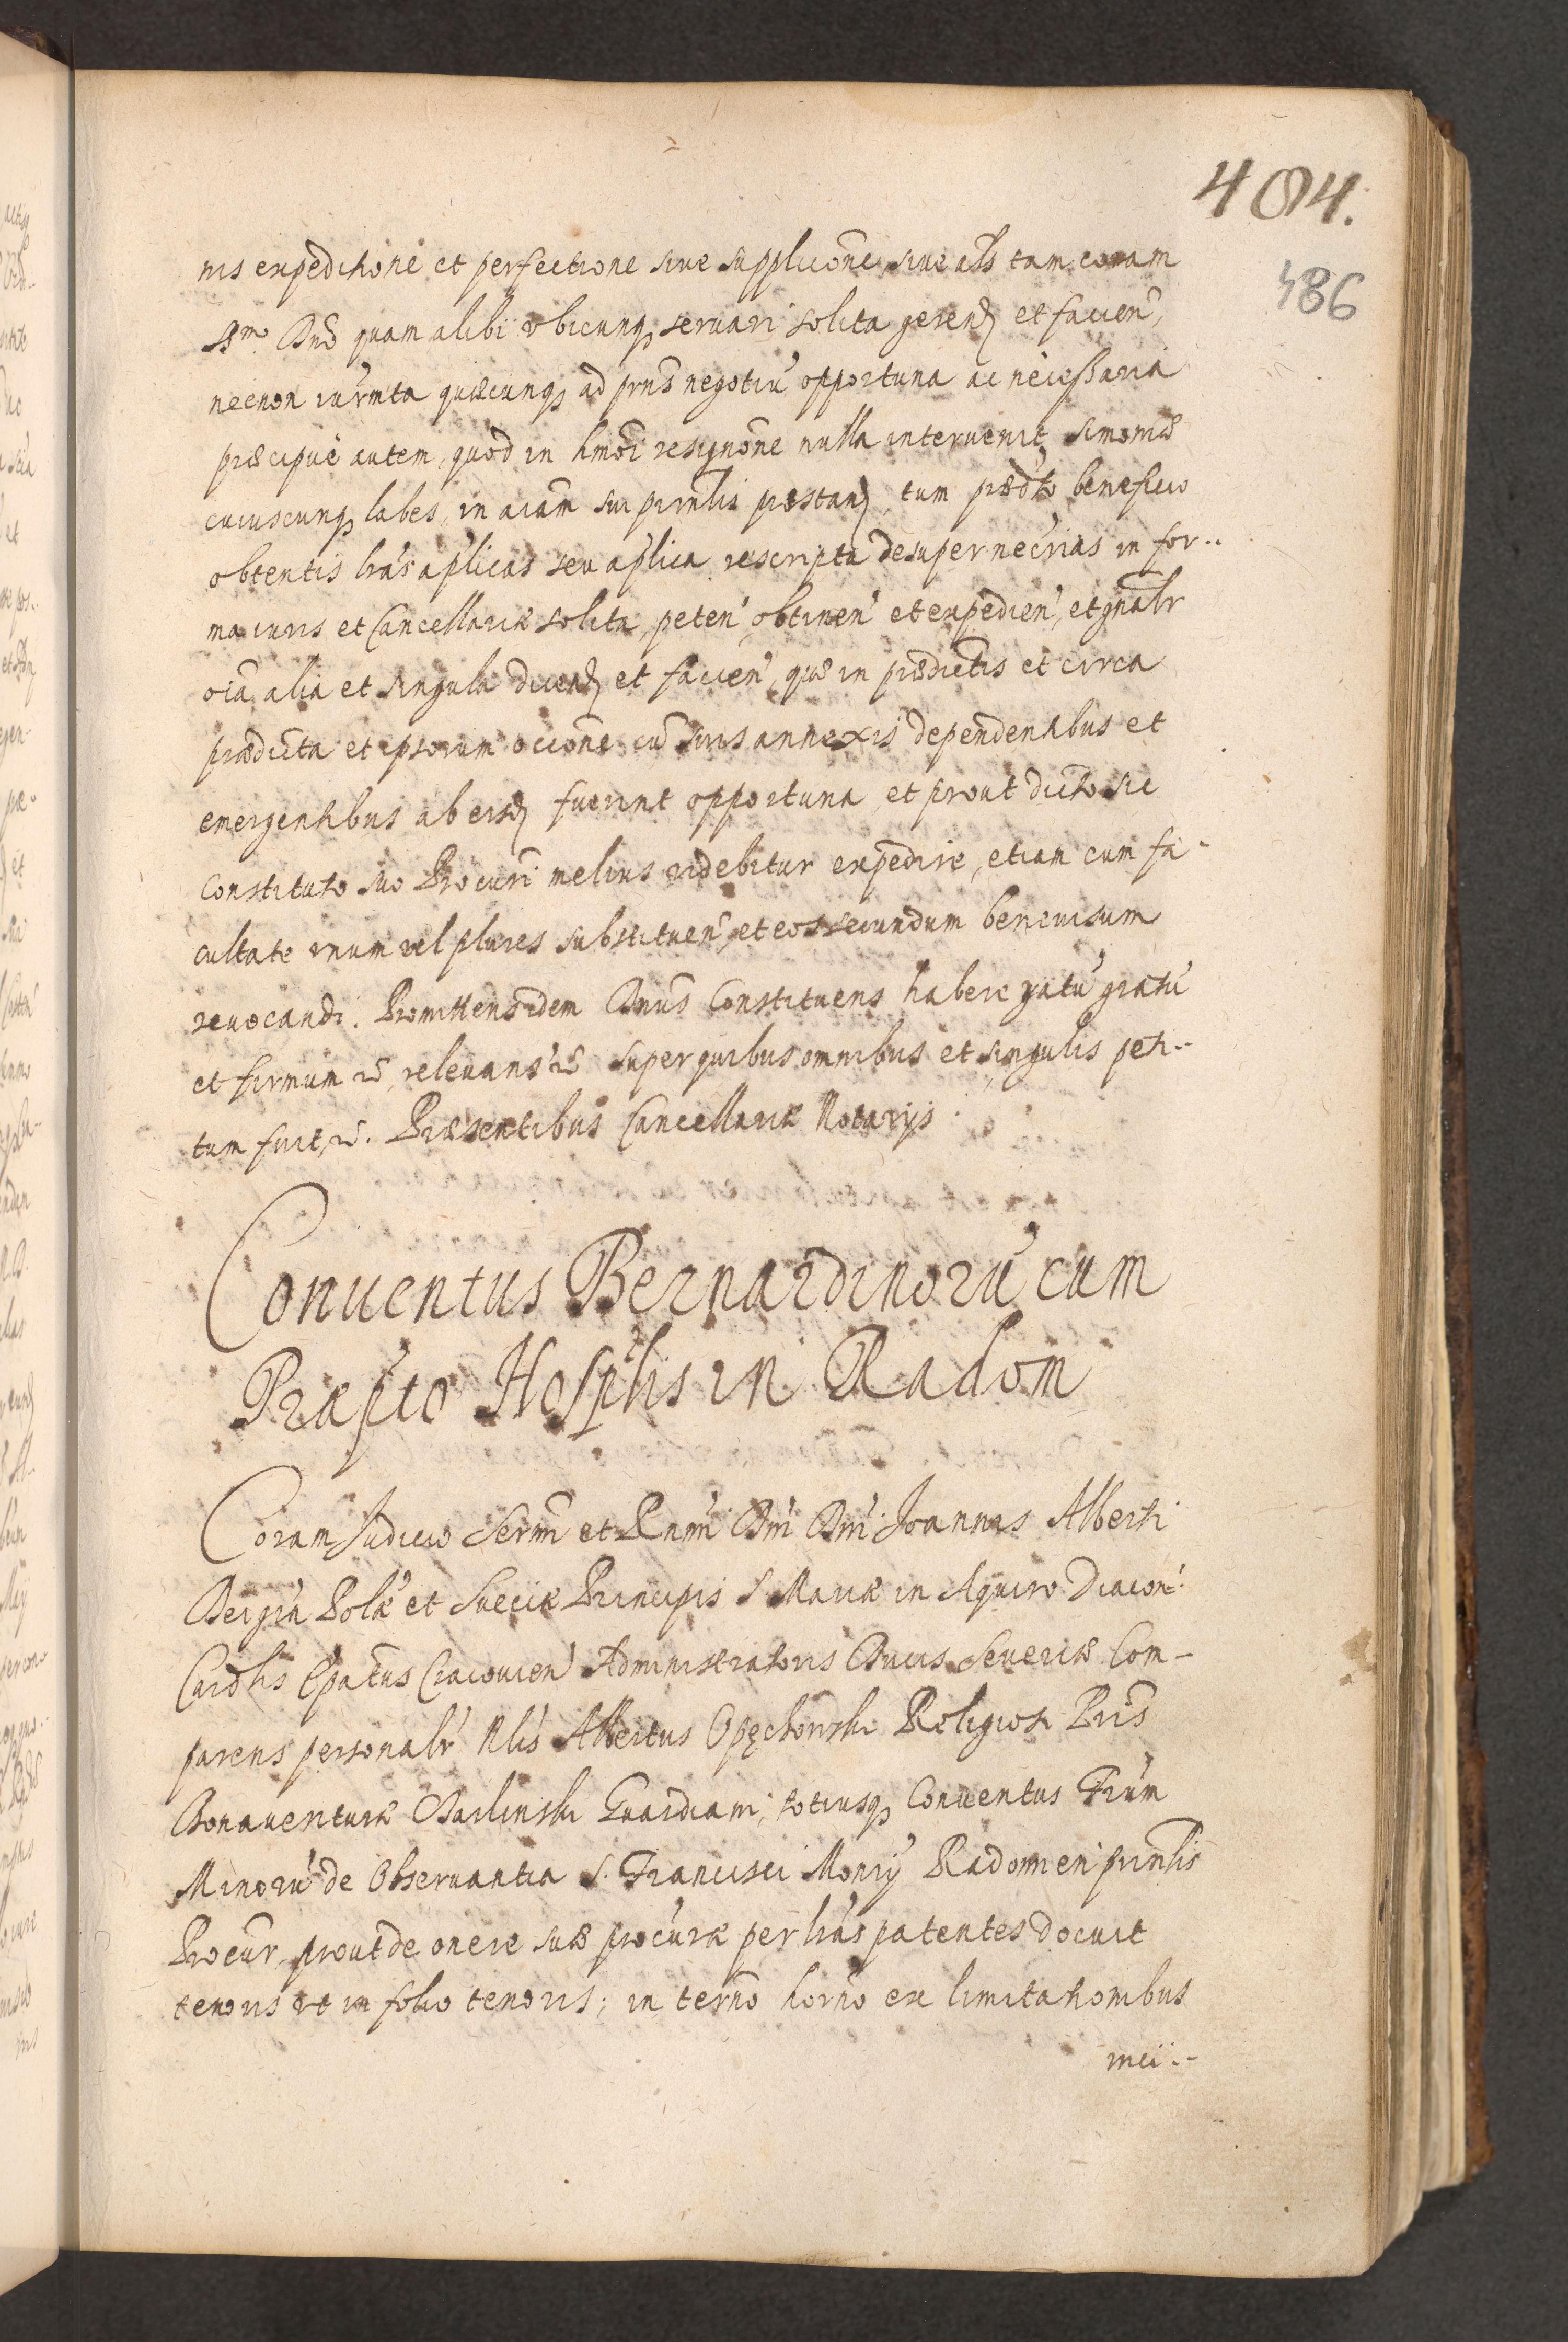 404.
486
nis expeditione et perfectione siue supplicõne, siue als tam coram
Smo Dno quam alibi vbicunq seruari solita gerend et facien,
necnon iurmta quæcunq ad pñs negotiu opportuna ac necessaria
præcipue autem, quod in hmoi resignõne nulla interuenit simoniæ
cuiuscunq labes, in aiam sui pñnlis præstand, tum prædto beneficio
obtentis lras aplicas seu aplica rescripta desuper necrias in for-
ma iuris et Cancellariæ solita, peten, obtinen et expedien, et gnalr
oia alia et singula dicend et facien, quæ in prædictis et circa
prædicta et ipsorum occõne cu suis annexis dependentibus et
emergentibus ab eisd fuerint opportuna et prout dicto sic
constituto suo Procuri melius videbitur expedire, etiam cum fa-
cultate vnum vel plures substituen, et eos secundum beneuisum
reuocandi. Promittens idem Dnus Constituens habere ratu gratu
et firmum &c, releuans &c super quibus omnibus et singulis peti-
tum fuit, &c. Præsentibus Cancellariæ Notarijs
Conuentus Bernardinoru cum
Præpto Hospłis in Radom
Coram Judicio Sermi et Rnmi Dni Dni Joannis Alberti
Dei gra Polæ et Sueciæ Principis S. Mariæ in Aquiro Diacon
Cardlis Epatus Cracouien Administratoris Ducis Seueriæ Com-
parens personalr Nlis Albertus Opęchowski Religiosi Pris
Bonauenturæ Guardiani, totiusq Conuentus Frum
Minoru de Obseruantia S. Francisci Monrij Radomien prinlis
Procur, prout de onere suæ procuræ per lras patentes docuit
tenoris vt in folio tenoris; in terno horno ex limitationibus
inci-